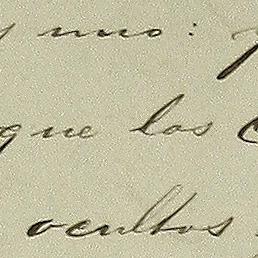 y uno:
que los
ocultos